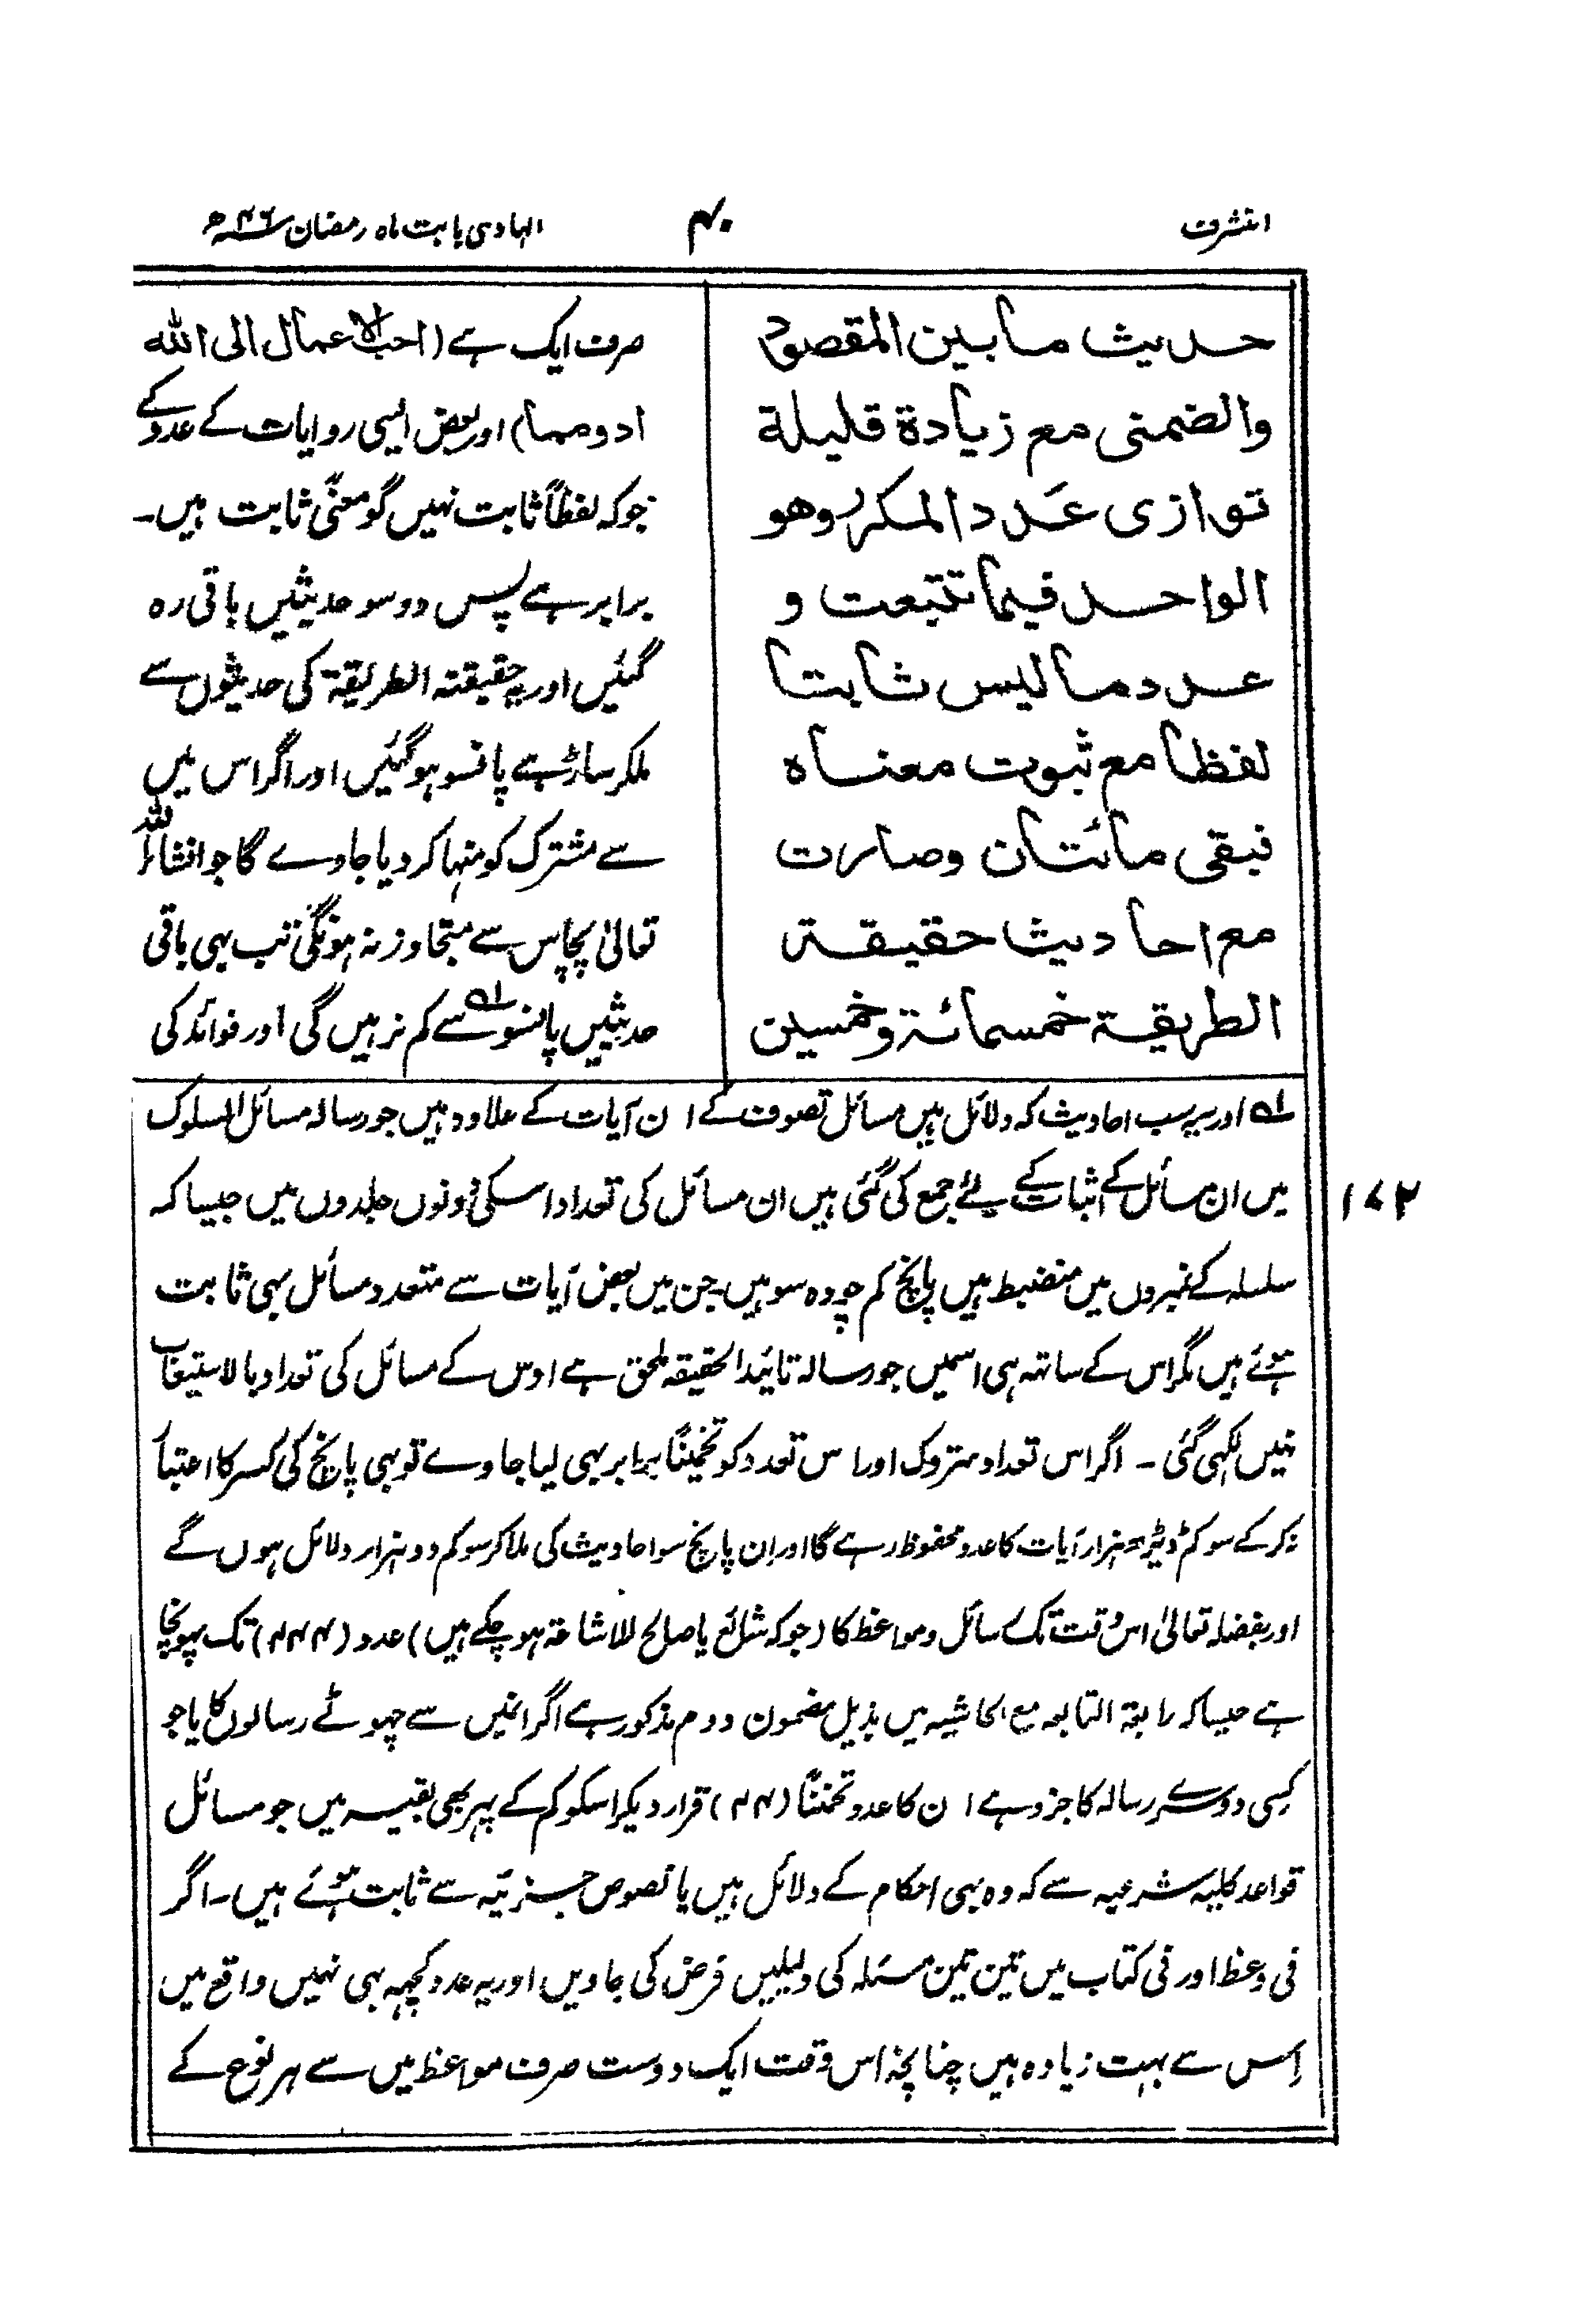 التشرف
۴۰
الہادی بابت ماہ رمضان سنہ ۴۶ ھ
حدیث ما بین المقصود
والضمنی مع زیادة قلیلة
توازی عدد المکرر وهو
الواحد فیما تتبعت و
عدد ما لیس ثابتا
لفظا مع ثبوت معناه
فبقی مائتان وصارت
مع احادیث حقیقة
الطریقة خمسمائة وخمسین
صرف ایک ہے (احب الاعمال الی الله
ادومها) اور بعض ایسی روایات کے عدد کے
جوکہ لفظاً ثابت نہیں گو معنًی ثابت ہیں۔
برابر ہے پس دو سو حدیثیں باقی رہ
گئیں اور یہ حقیقتہ الطریقۃ کی حدیثوں سے
ملکر ساڑہے پانسو ہوگئیں اور اگر اس میں
سے مشترک کو منہا کر دیا جاوے گا جو انشاء اللہ
تعالیٰ پچاس سے متجاوز نہ ہونگی تب بہی باقی
حدیثیں پانسو ؂۱ سے کم نہ رہیں گی اور فوائد کی
؂۱ اور یہ سب احادیث کہ دلائل ہیں مسائل تصوف کے ان آیات کے علاوہ ہیں جو رسالہ مسائل السلوک
میں ان مسائل کے اثبات کے لئے جمع کی گئی ہیں ان مسائل کی تعداد اسکی دونوں جلدوں میں جیسا کہ
۱۷۲
سلسلہ کے نمبروں میں منضبط ہیں پانچ کم چودہ سو ہیں۔ جن میں بعض آیات سے متعدد مسائل بہی ثابت
ہوئے ہیں مگر اس کے ساتھ ہی اسمیں جو رسالہ تائید الحقیقہ ملحق ہے اوس کے مسائل کی تعداد بالاستیعاب
نہیں لکہی گئی ۔ اگر اس تعداد متروک اور اس تعدد کو تخمیناً برابر بہی لیا جاوے تو بہی پانچ کی کسر کا اعتبار
نہ کر کے سو کم ڈیڑھ ہزار آیات کا عدد محفوظ رہے گا اور ان پانچ سو احادیث کی ملا کر سو کم دو ہزار دلائل ہوں گے
اور بفضلہ تعالیٰ اس وقت تک رسائل و مواعظ کا (جوکہ شائع یا صالح للاشاعۃ ہو چکے ہیں) عدد (۴۴۴) تک پہونچا
ہے جیسا کہ رابعۃ التابعہ مع الحاشیہ میں بذیل مضمون دوم مذکور ہے اگر انمیں سے چہوٹے رسالوں کا یا جو
کسی دوسرے رسالہ کا جزو ہے ان کا عدد تخمیناً (۴۴) قرار دیکر اسکو کم کے پہر بھی بقیہ میں جو مسائل
قواعد کلیہ شرعیہ سے کہ وہ بہی احکام کے دلائل ہیں یا نصوص جزئیہ سے ثابت ہوئے ہیں۔ اگر
فی وعظ اور فی کتاب میں تین تین مسئلہ کی دلیلیں فرض کی جاویں اور یہ عدد کچہہ بہی نہیں واقع میں
اس سے بہت زیادہ ہیں چنانچہ اس وقت ایک دوست صرف مواعظ میں سے ہر نوع کے